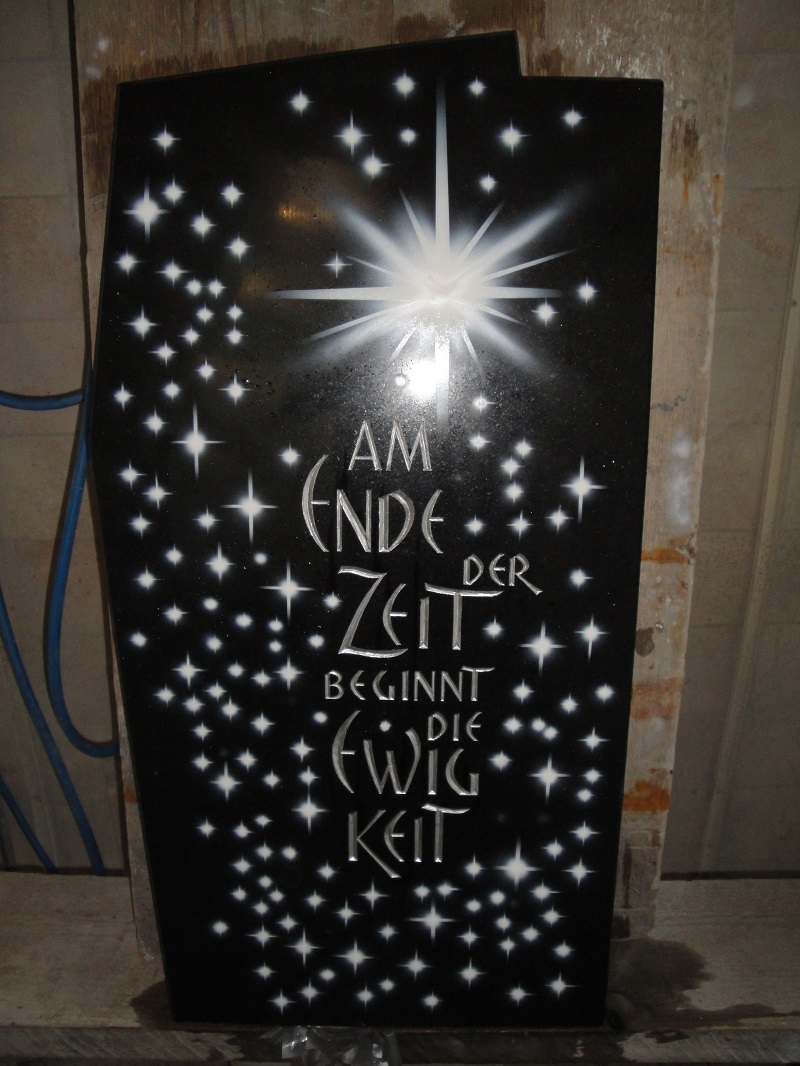 AM
ENDE
DER
ZEIT
BEGINNT
DIE
EWIG
KEIT